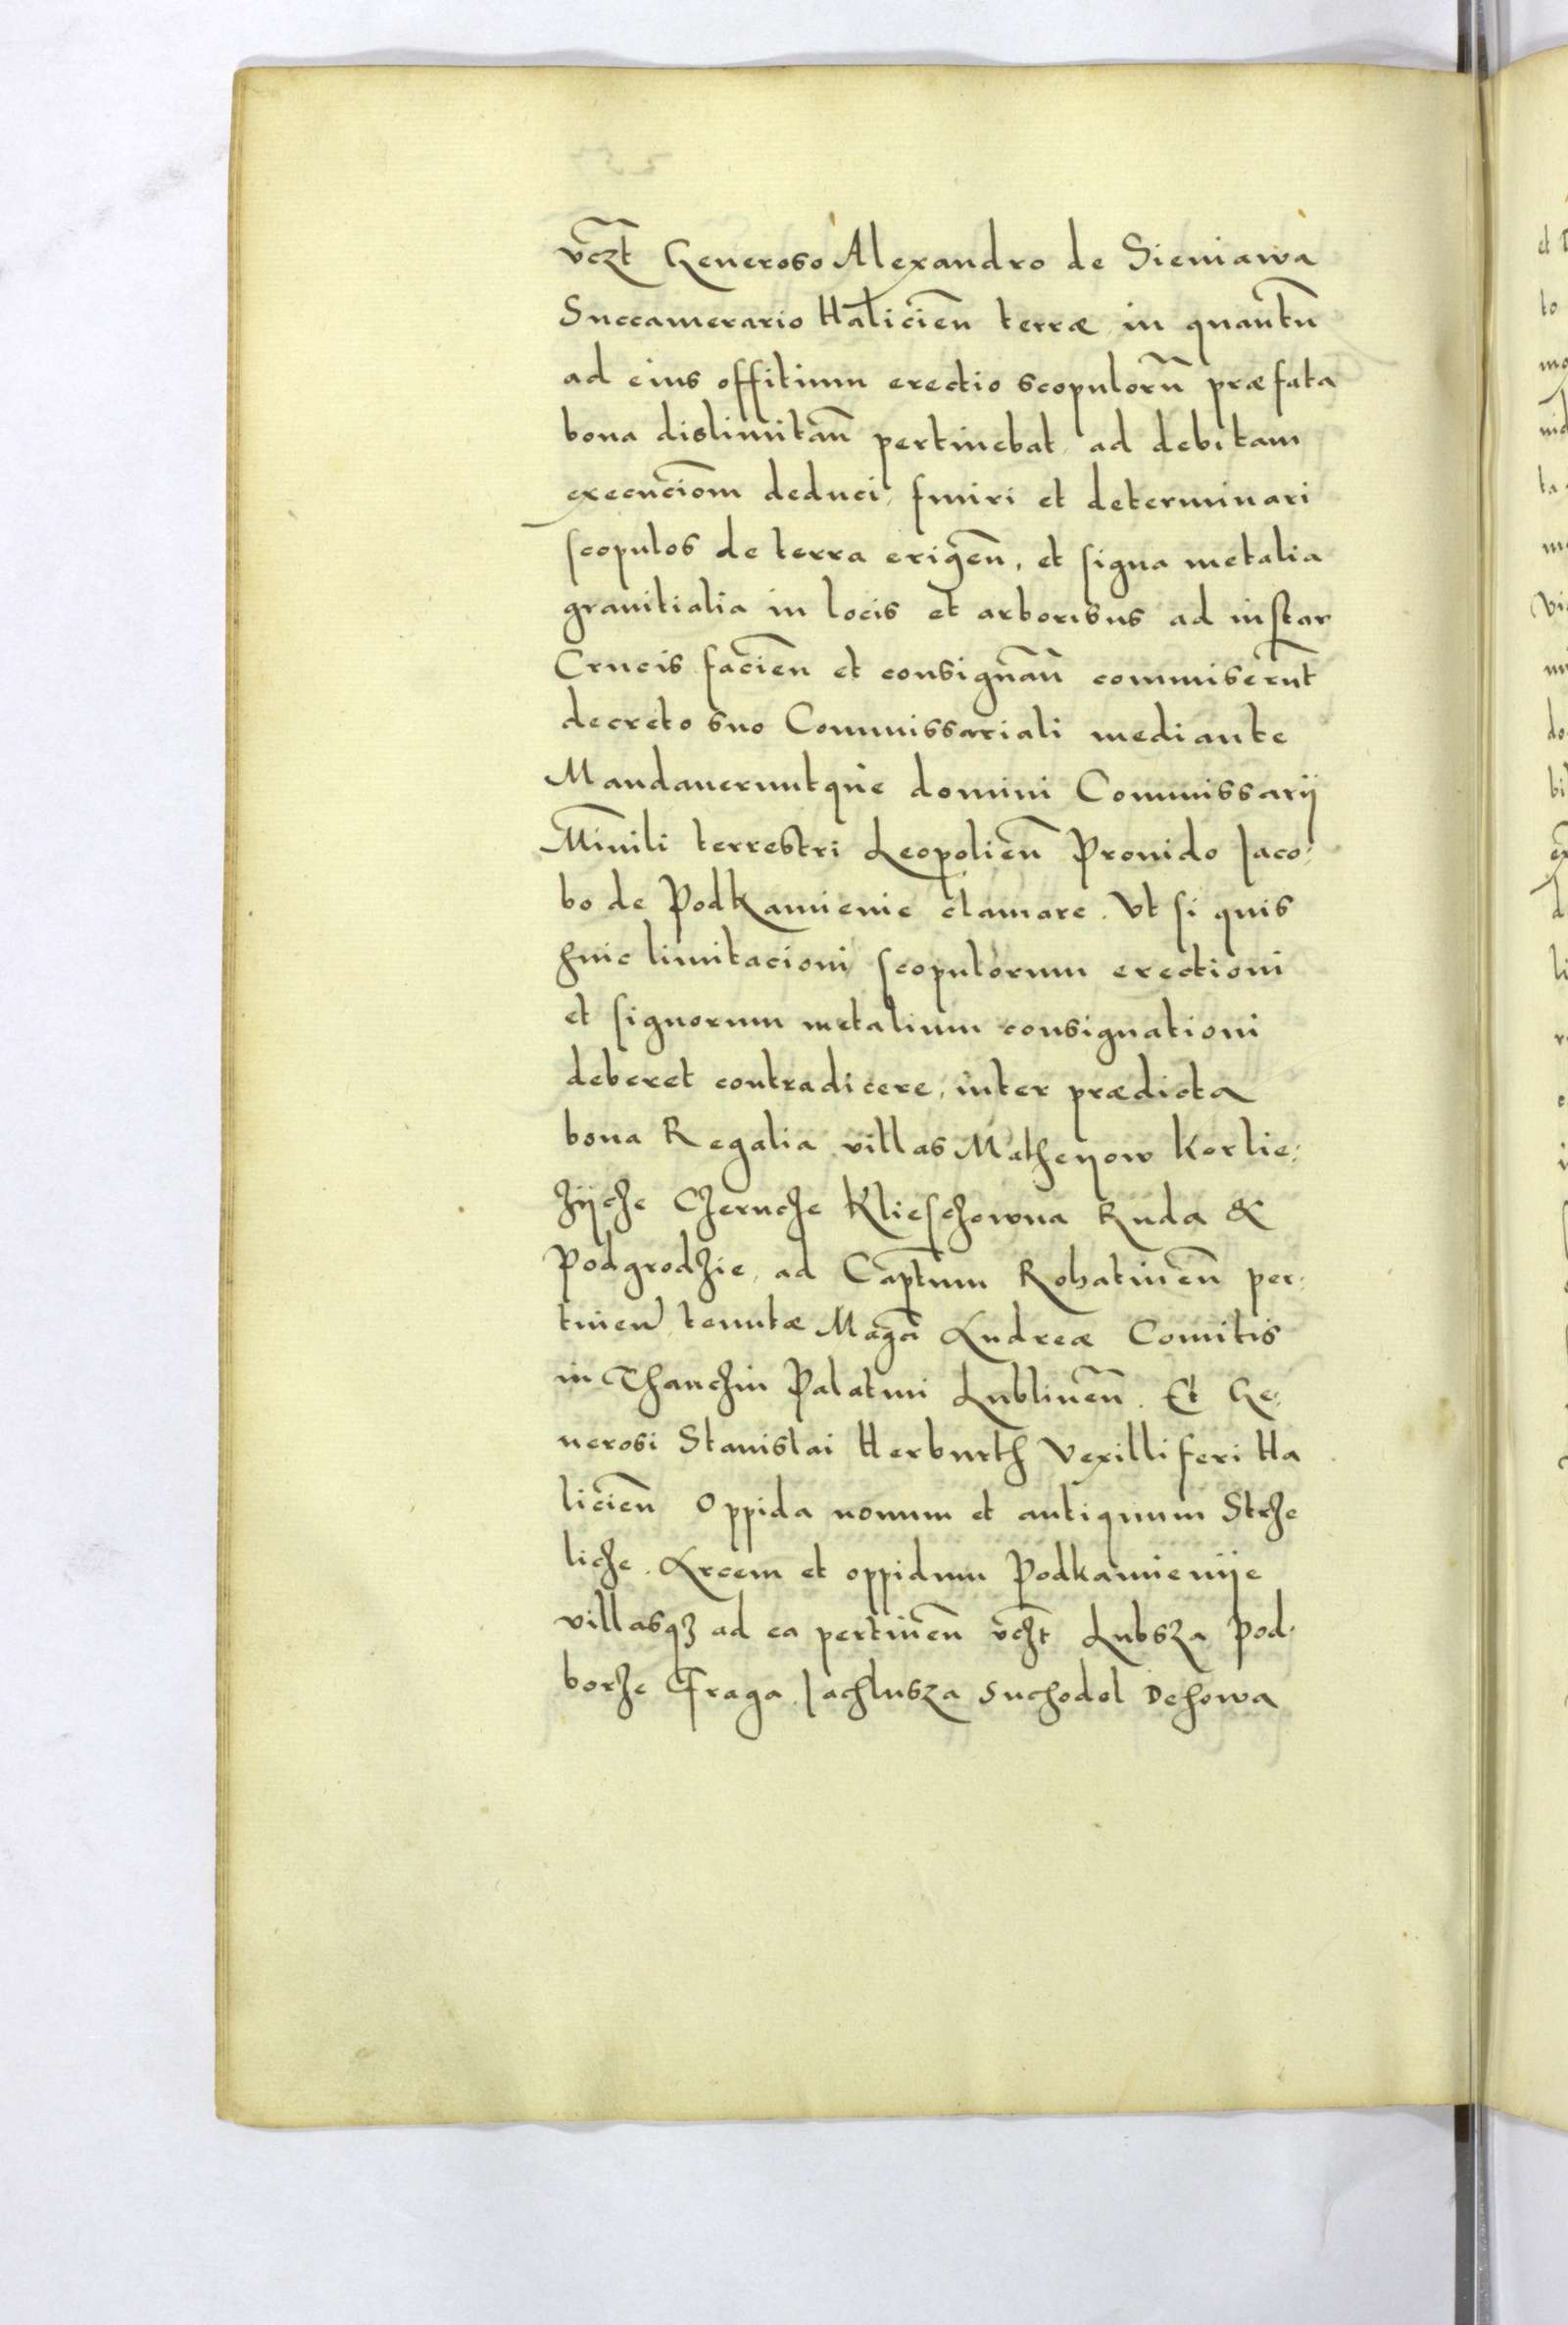 vczt Generoso Alexandro de Sieniawa
Succamerario Halicien̄ terræ in quantū
ad eius offitium erectio scopulorū præfata
bona dislimitan̄ pertinebat, ad debitam
execuciōm deduci, finiri et determinari
scopulos de terra erigen̄, et signa metalia
granitialia in locis et arboribus ad instar
Crucis facien̄ et consignan̄ commiserūt
decreto suo Commissariali mediante
Mandaueruntque domini Commissarij
Mīnili terrestri Leopolien̄ Prouido Jaco:
bo de Podkamienie clamare. Vt si quis
huic limitacioni scopulorum erectioni
et signorum metalium consignationi
deberet contradicere, inter prædicta
bona Regalia villas Matheyow Korlie:
zÿcze Czerncze Klieschowna Ruda &
Podgrodzie, ad Capt̄um Rohatinen̄ per:
tinen̄ tenutæ Magn̄ Andreæ Comitis
in Thanczin Palatini Lublinen̄. Et Ge:
nerosi Stanislai Herburth Vexilliferi Ha
licien̄ Oppida nouum et antiquum Strze
licze. Arcem et oppidum Podkamienÿe
villasqꝫ ad ea pertinen̄ vczt̄ Lubsza Pod:
borze Fraga Jachlusza Suchodol Dehowa